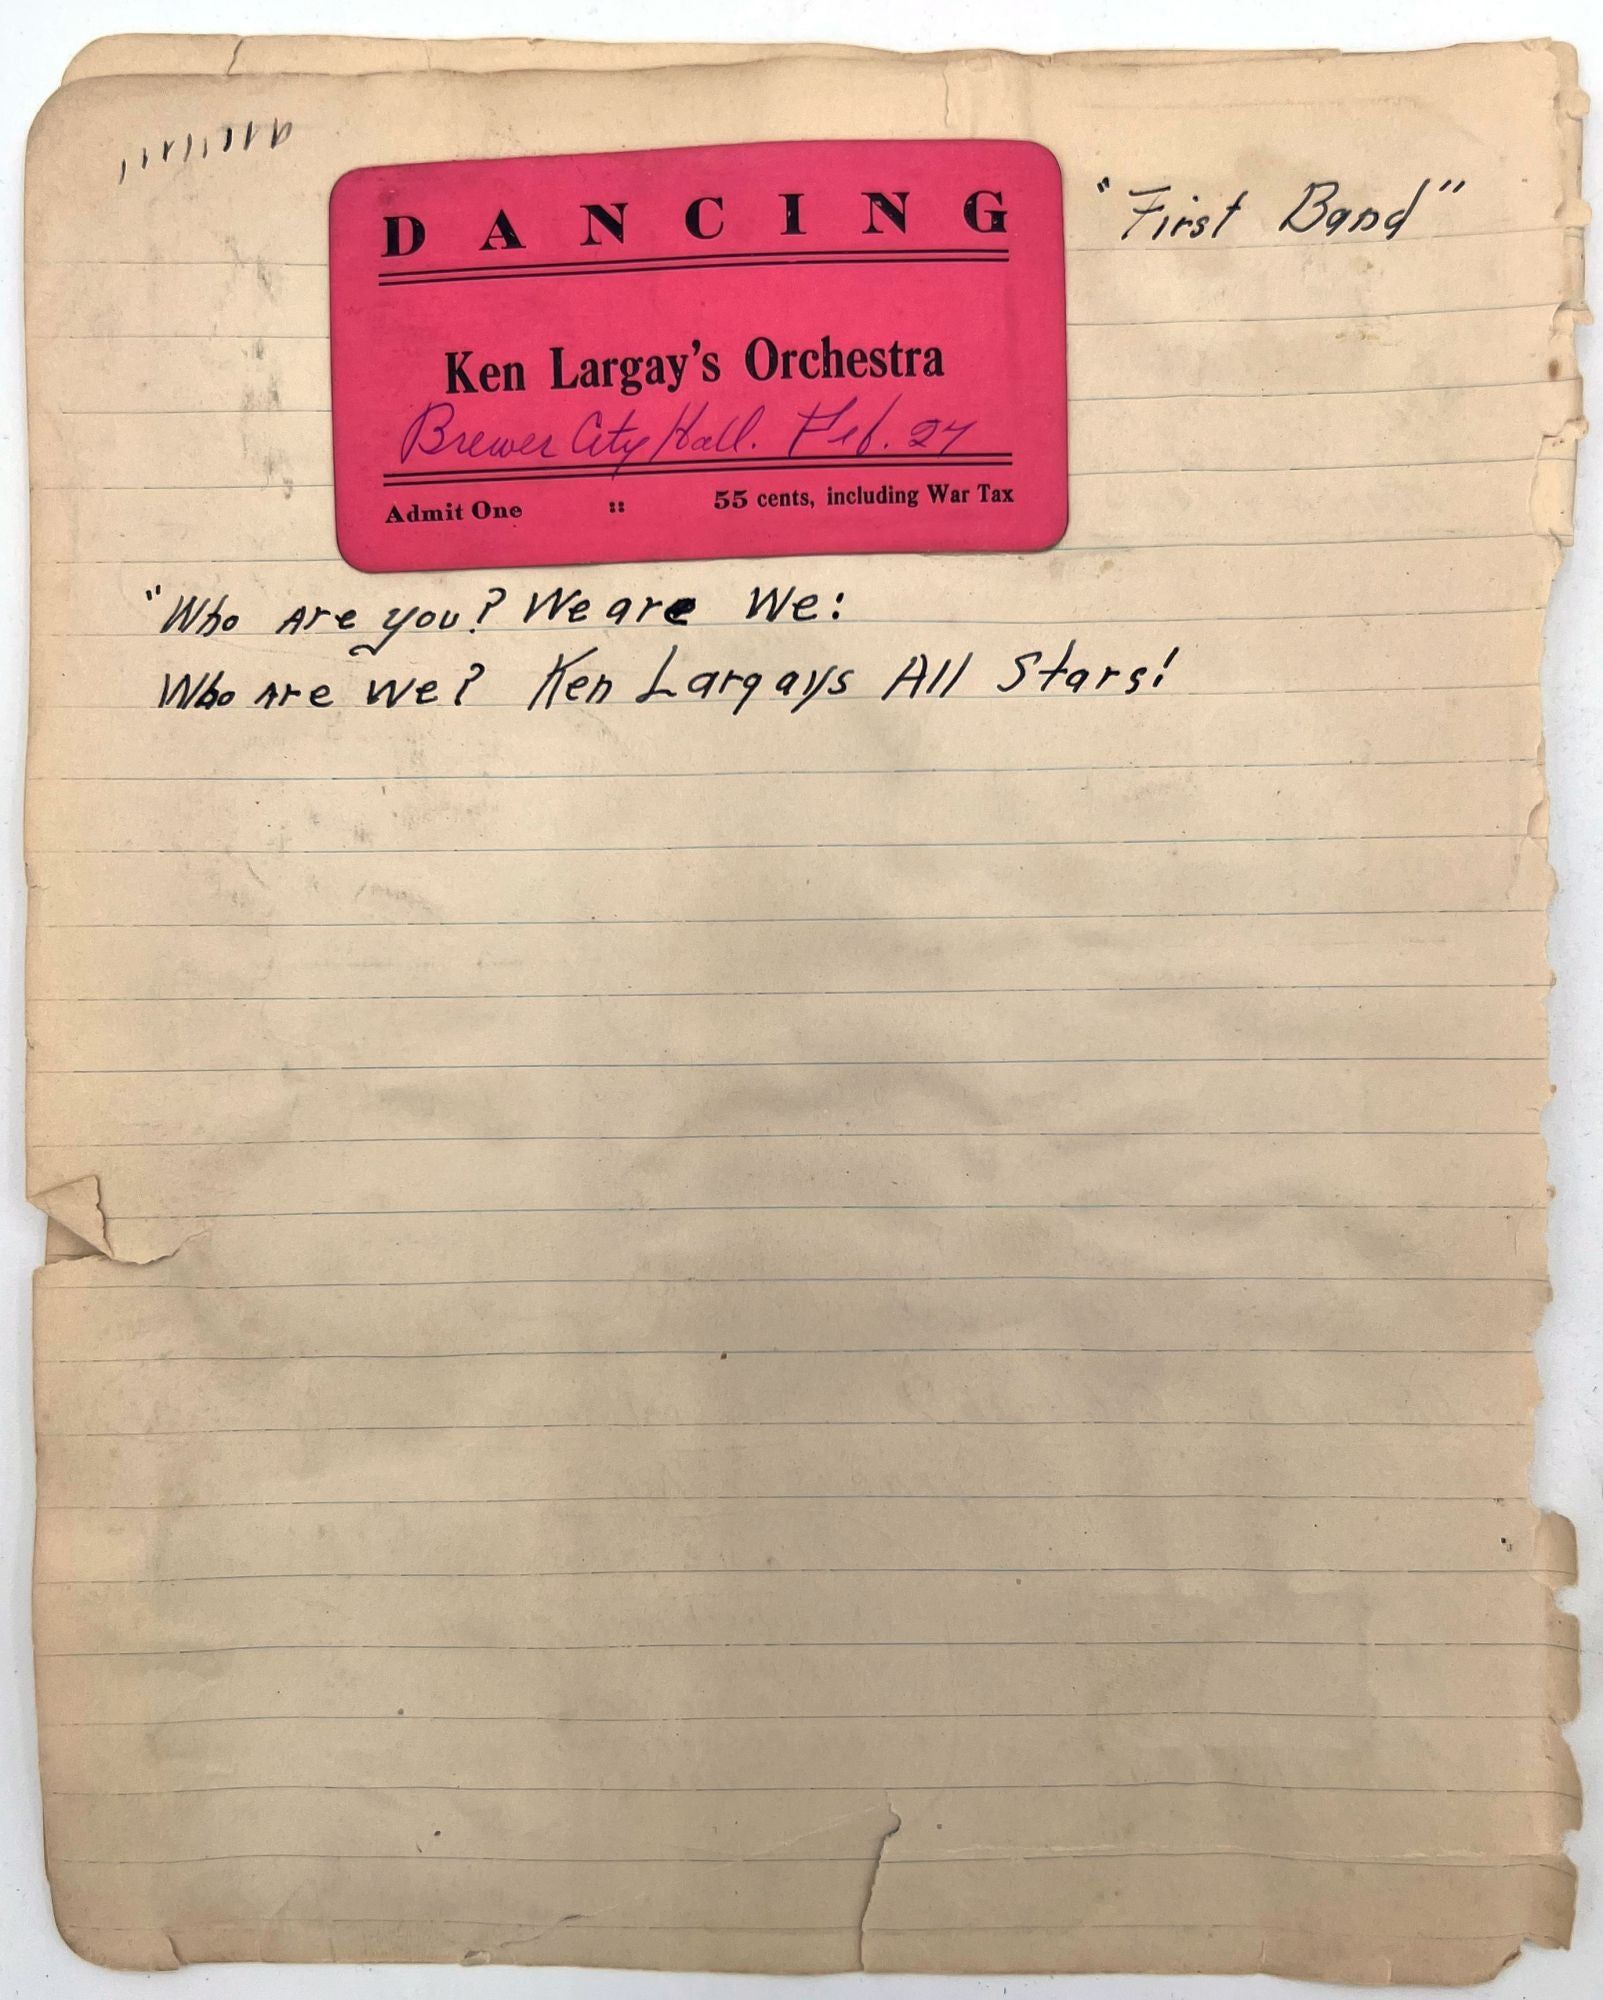 DANCING
"First Band"
Ken Largay's Orchestra
Brewer City Hall. Feb. 27
Admit One :: 55 cents, including War Tax
"Who Are you? We are We:
Who Are we? Ken Largays All Stars!